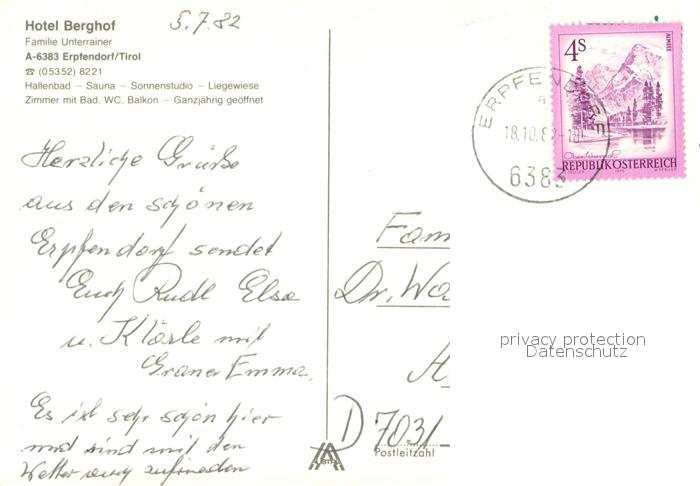 Hotel Berghof
Familie Unterrainer
A-6383 Erpfendorf/Tirol
☎ (05352) 8221
Hallenbad – Sauna – Sonnenstudio – Liegewiese
Zimmer mit Bad, WC, Balkon – Ganzjährig geöffnet
5.7.82
Herzliche Grüße
aus den schönen
Erpfendorf sendet
Euch Rudl Elsa
u. Klärle mit
Emma.
Es ist sehr schön hier
und sind mit den
Wetter auch zufrieden
ERPFENDORF
a
18.10.82-10
6383
4S
ALMSEE
Oberösterreich
REPUBLIK ÖSTERREICH
Fam
Dr. Wa
A
D 7031
Postleitzahl
privacy protection
Datenschutz